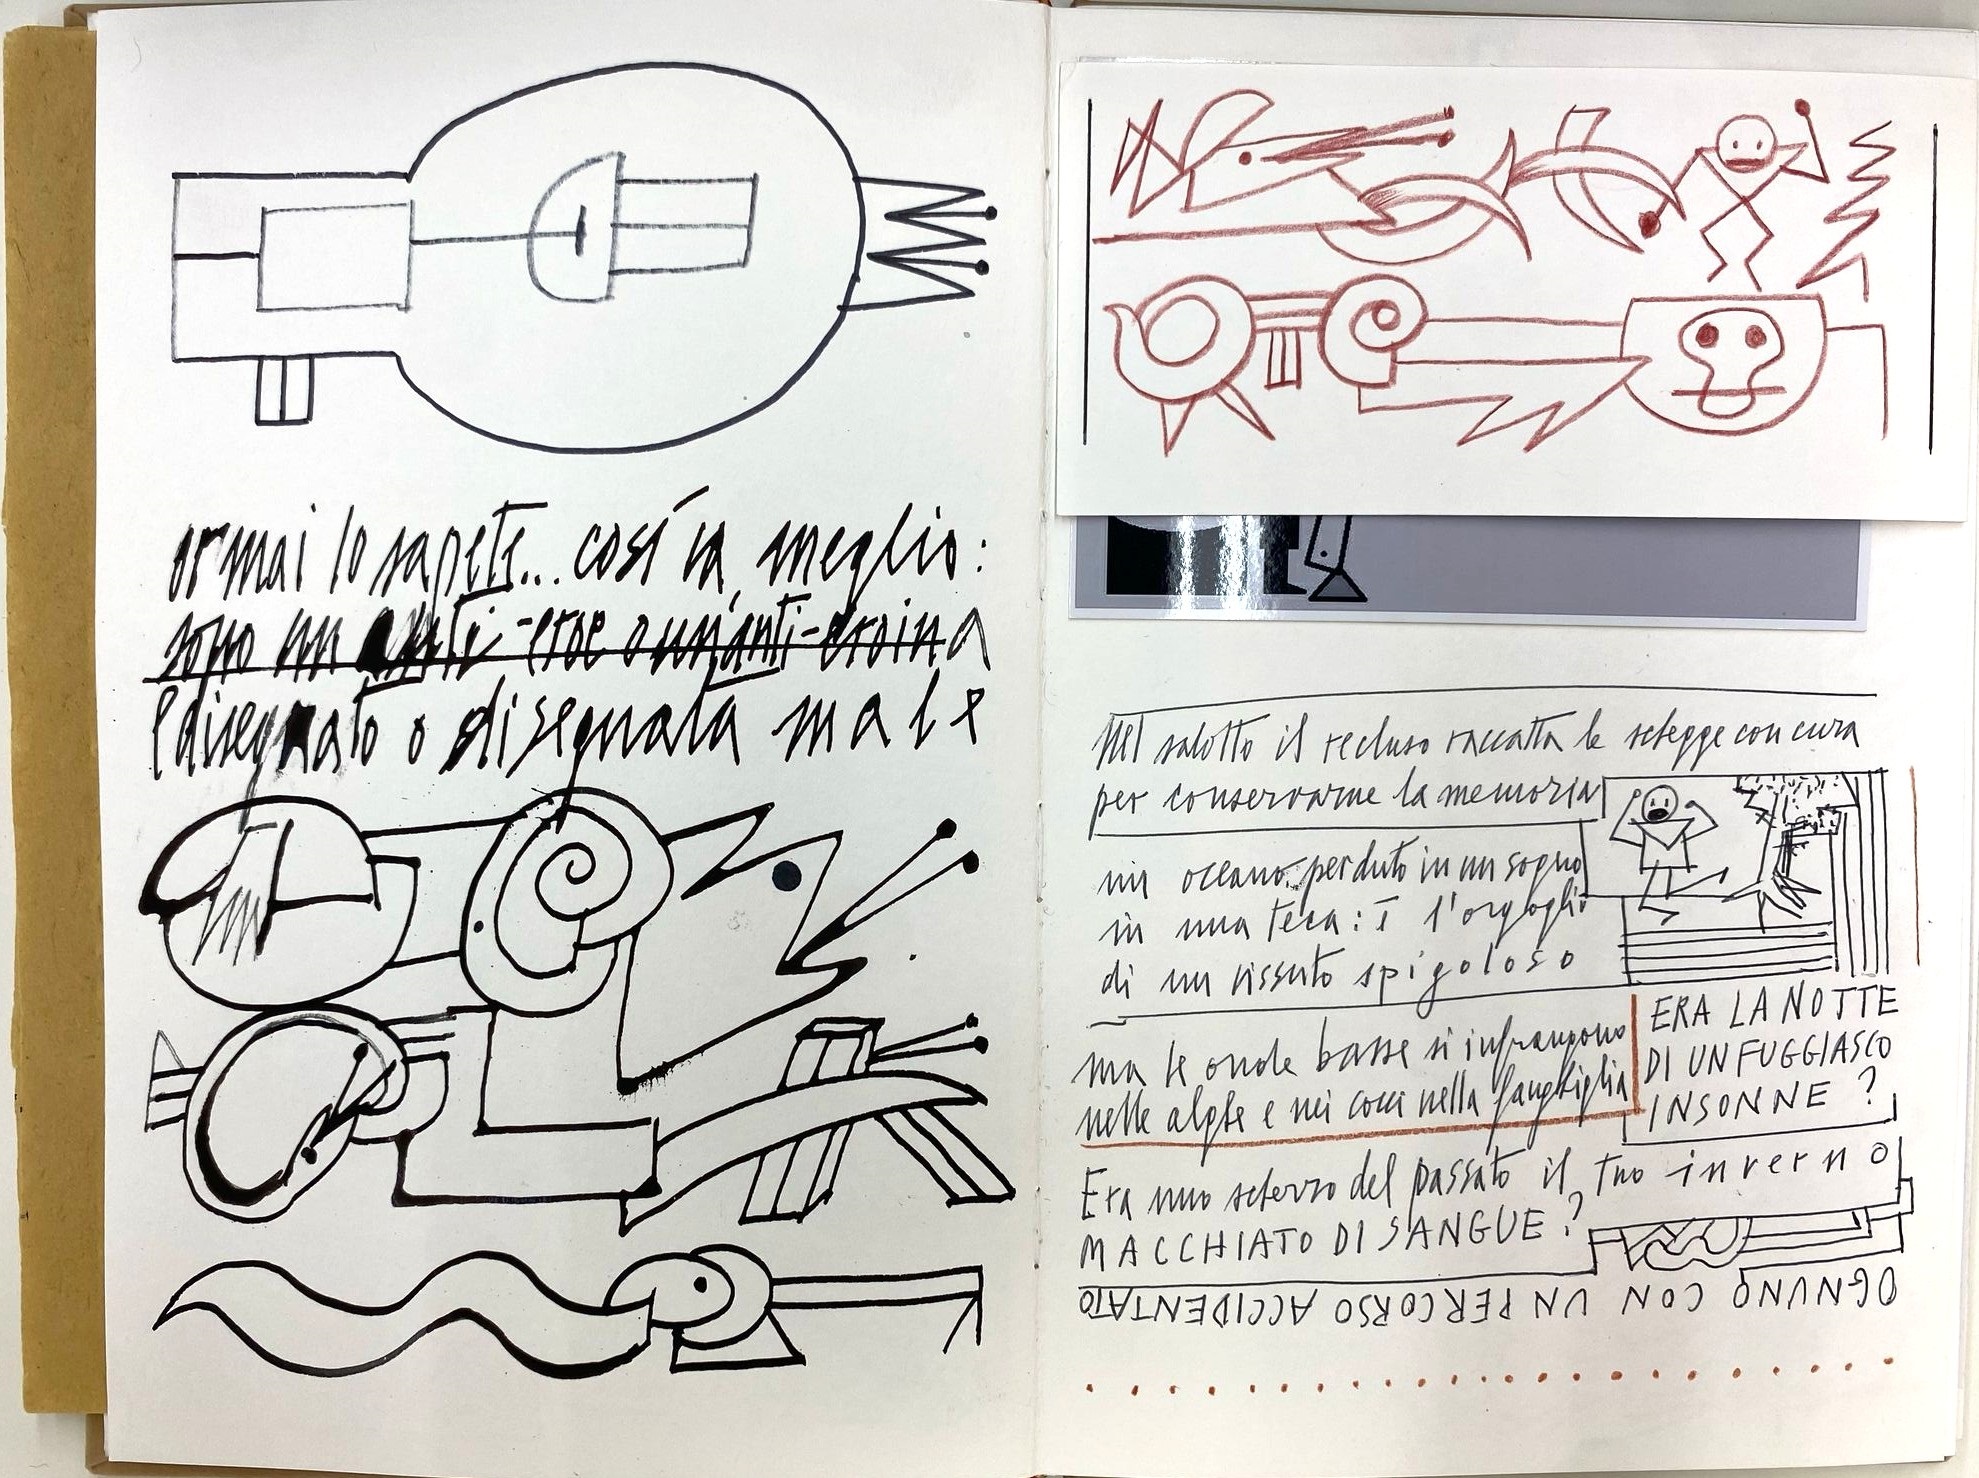 ormai lo sapete... così va meglio:
sono un anti-eroe o un'anti-eroina
è disegnato o disegnata male
Nel salotto il recluso raccatta le schegge con cura
per conservarne la memoria
un oceano perduto in un sogno
in una teca: è l'orgoglio
di un vissuto spigoloso
ma le onde basse si infrangono
nelle alghe e nei cocci nella fanghiglia
ERA LA NOTTE
DI UN FUGGIASCO
INSONNE ?
Era uno scherzo del passato il tuo inverno
MACCHIATO DI SANGUE ?
OGNUNO CON UN PERCORSO ACCIDENTATO